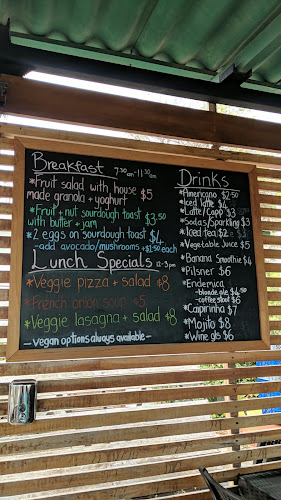 Breakfast 7:30am-11:30am
*Fruit salad with house
made granola + yoghurt $5
*Fruit + nut sourdough toast
with butter + jam $3.50
*2 eggs on sourdough toast $4
-add avocado/mushrooms +$1.50 each
Lunch Specials 12-3pm
*Veggie pizza + salad $8
*French onion soup $5
*Veggie lasagna + salad $8
- vegan options always available -
Drinks
*Americano $2.50
*Iced latte $4
*Latte/Capp $3
*Sodas/Sparkling $3
*Iced tea $2
*Vegetable Juice $5
*Banana Smoothie $4
*Pilsner $6
*Endémica
-blonde ale $4.50
-coffee stout $6
*Caipirinha $7
*Mojito $8
*Wine gls $6